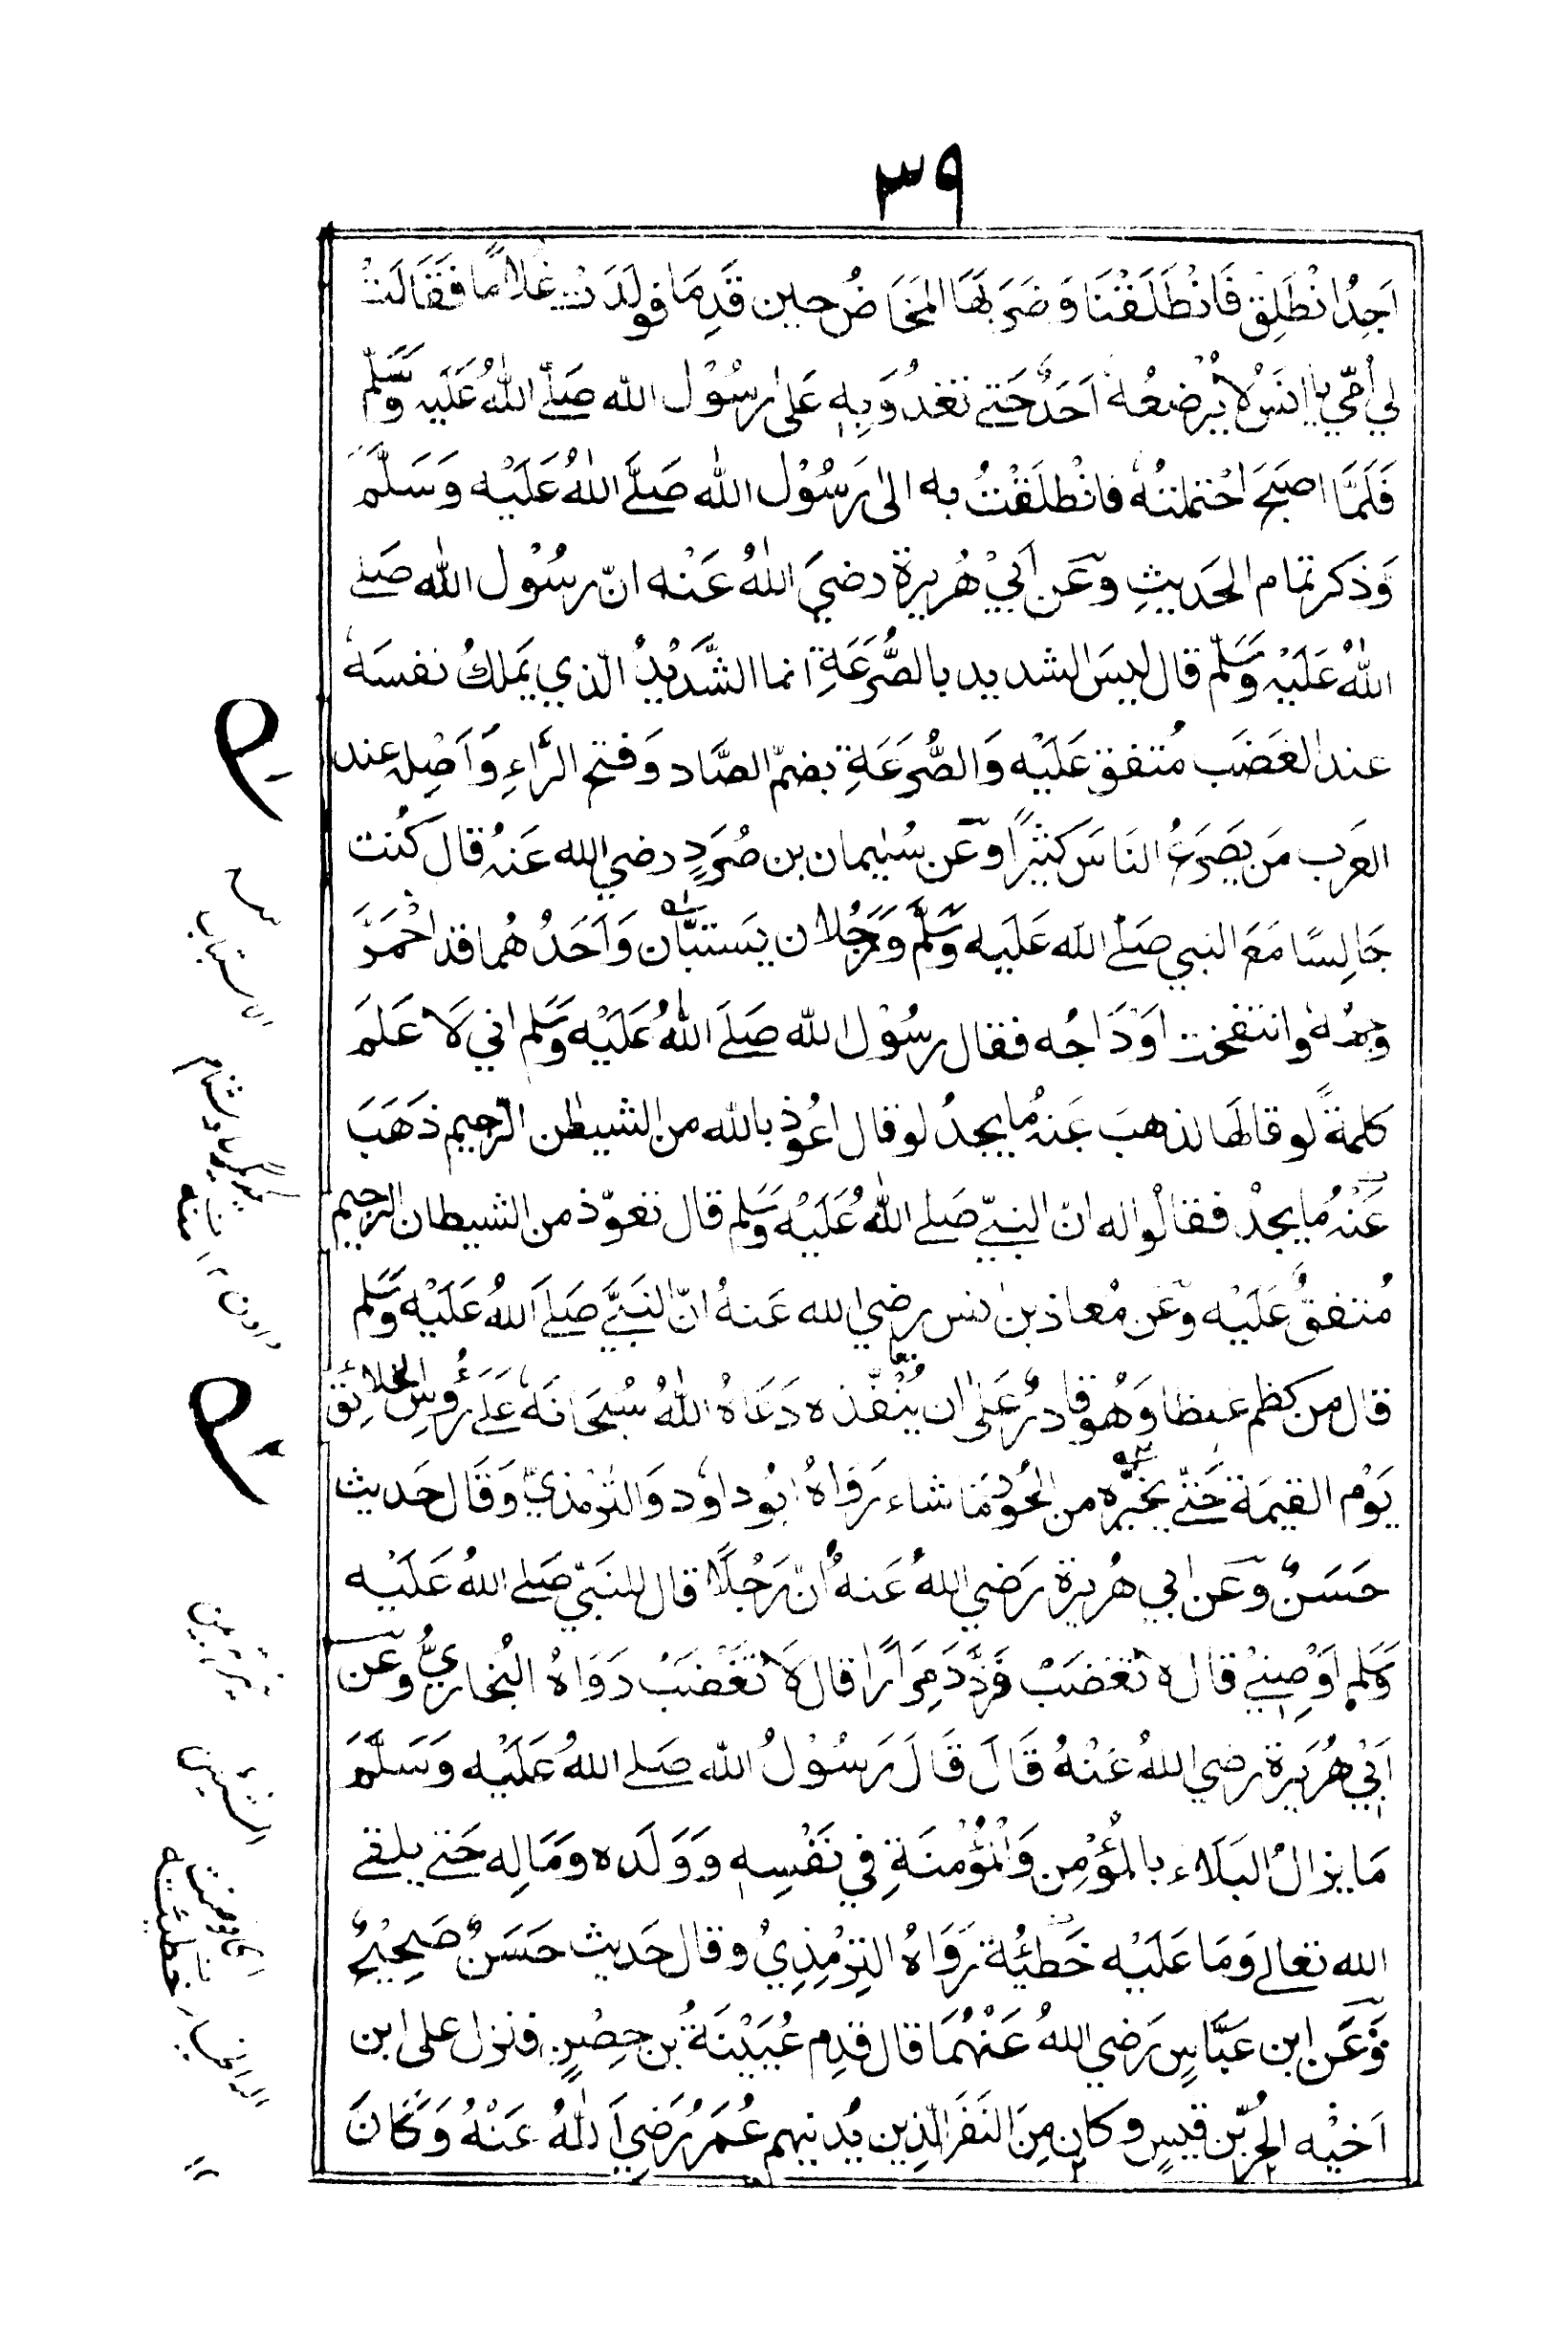 ٣٩
اَجِدُ انْطَلِقْ فَانْطَلَقْنَا وَضَرَبَهَا المَخَاضُ حين قَدِمَا فولَدَتْ غُلَامًا فَقَالَتْ
لِي اُمّي يا انَسُ لَا يُرْضِعُهُ اَحَدٌ حَتّے تغدُوَ بِهٖ عَلٰى رسُوْل الله صَلّے اللهُ عَلَيه وَسَلّم
فَلَمّا اصبَحَ احْتملتُهُ فانْطلَقْتُ به الىٰ رَسُوْل الله صَلَّے اللهُ عَلَيْه وَسَلَّمَ
وَذكر تمام الحَديثِ وعَن اَبيْ هُريرة رضيَ اللهُ عَنْه انّ رسُوْل الله صَلے
اللهُ عَلَيْه وَسَلّم قال ليسَ الشديد بالصُّرَعَةِ انما الشَّدَيْدُ الّذي يَملكُ نفسَهٗ
عند الغَضَب مُتفق عَلَيْه وَالصُّرَعَةِ بضمّ الصَّاد وَفتح الرَّاءِ وَاَصْله عند
العَرَب مَن يَصرَعُ النَاسَ كَثيْرًا وعَن سُليمان بن صُرَدٍ رضي الله عَنهُ قال كُنت
جَالِسًا مَعَ النبي صَلّے الله عَلَيه وَسَلَّمَ وَرَجُلان يَستبَّان وَاَحَدُهُما قد احْمَرَّ
وجهُهٗ وانتفخت اَوْدَاجُه فقال رسُوْل الله صَلَے اللهُ عَلَيْه وَسَلم اني لَاَعلَمَ
كلمةً لو قالهَا لذهبَ عَنهُ ما يجدُ لو قال اعُوْذ بالله من الشيطٰن الرّجيم ذَهَبَ
عَنْهُ ما يجدْ فقالُوا له انّ النبيّے صَلے اللهُ عَلَيْه وَسَلم قال تعَوّذ من الشيطان الرجيم
مُتفقٌ عَلَيْه وعَن مُعاذ بن انس رضي الله عَنهُ انّ النبَيَّے صَلےَ اللهُ عَلَيْه وَسَلم
قال من كظم غيظا وَهُو قادرٌ عَلٰى ان يُنْفّذه دَعَاهُ اللهُ سُبْحَانَهٗ عَلَے رُؤُسِ الخلائِق
يَوْم القيمَة حَتّے يخيّره من الحُوْر مَا شاء رَوَاهُ ابُو داوٗد وَالترْمذيّ وَقَال حَديث
حَسَنٌ وعَن ابي هُريرة رَضي اللهُ عَنهُ انّ رَجُلًا قال للنبَيّ صَلے اللهُ عَلَيْه
وَسَلم اَوْصِنِيْ قال لَا تغضَبْ فَردّدَ مِرَارًا قال لَا تَغْضَبْ رَوَاهُ البُخاريُّ وعَن
اَبِيْ هُرَيرة رضي اللهُ عَنْهُ قَالَ قَالَ رَسُوْلُ الله صَلے اللهُ عَلَيْه وَسَلَّمَ
مَا يزالُ البَلَاء بالمُؤْمِن وَالْمُؤْمنَةِ فِي نَفْسِهٖ وَوَلَده وَمَالِه حَتے يلقے
الله تعالے وَمَا عَلَيْه خَطيْئَة رَوَاهُ التِرْمِذِيُ وقال حَديث حَسَنٌ صَحِيْحٌ
وَعَن ابن عَبَّاسٍ رَضي اللهُ عَنْهُمَا قال قدِم عُيَيْنَةُ بن حِصْنٍ فنزل على ابن
اَخيْه الحُرّ بْن قيسٍ وكان مِنَ النَفَر الّذِين يُدنيهم عُمَرُ رَضِيَ اللهُ عَنْهُ وَكَانَ